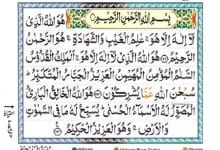 بِسْمِ اللهِ الرَّحْمٰنِ الرَّحِيْمِ
هُوَ اللهُ الَّذِیْ
لَاۤ اِلٰهَ اِلَّا هُوَۚ عٰلِمُ الْغَیْبِ وَالشَّهَادَةِۚ هُوَ الرَّحْمٰنُ
الرَّحِیْمُ هُوَ اللهُ الَّذِیْ لَاۤ اِلٰهَ اِلَّا هُوَۚ اَلْمَلِكُ الْقُدُّوْسُ
السَّلٰمُ الْمُؤْمِنُ الْمُهَیْمِنُ الْعَزِیْزُ الْجَبَّارُ الْمُتَكَبِّرُؕ
سُبْحٰنَ اللهِ عَمَّا یُشْرِكُوْنَ هُوَ اللهُ الْخَالِقُ الْبَارِئُ
الْمُصَوِّرُ لَهُ الْاَسْمَآءُ الْحُسْنٰیؕ یُسَبِّحُ لَهٗ مَا فِی السَّمٰوٰتِ
وَالْاَرْضِۚ وَهُوَ الْعَزِیْزُ الْحَكِیْمُ